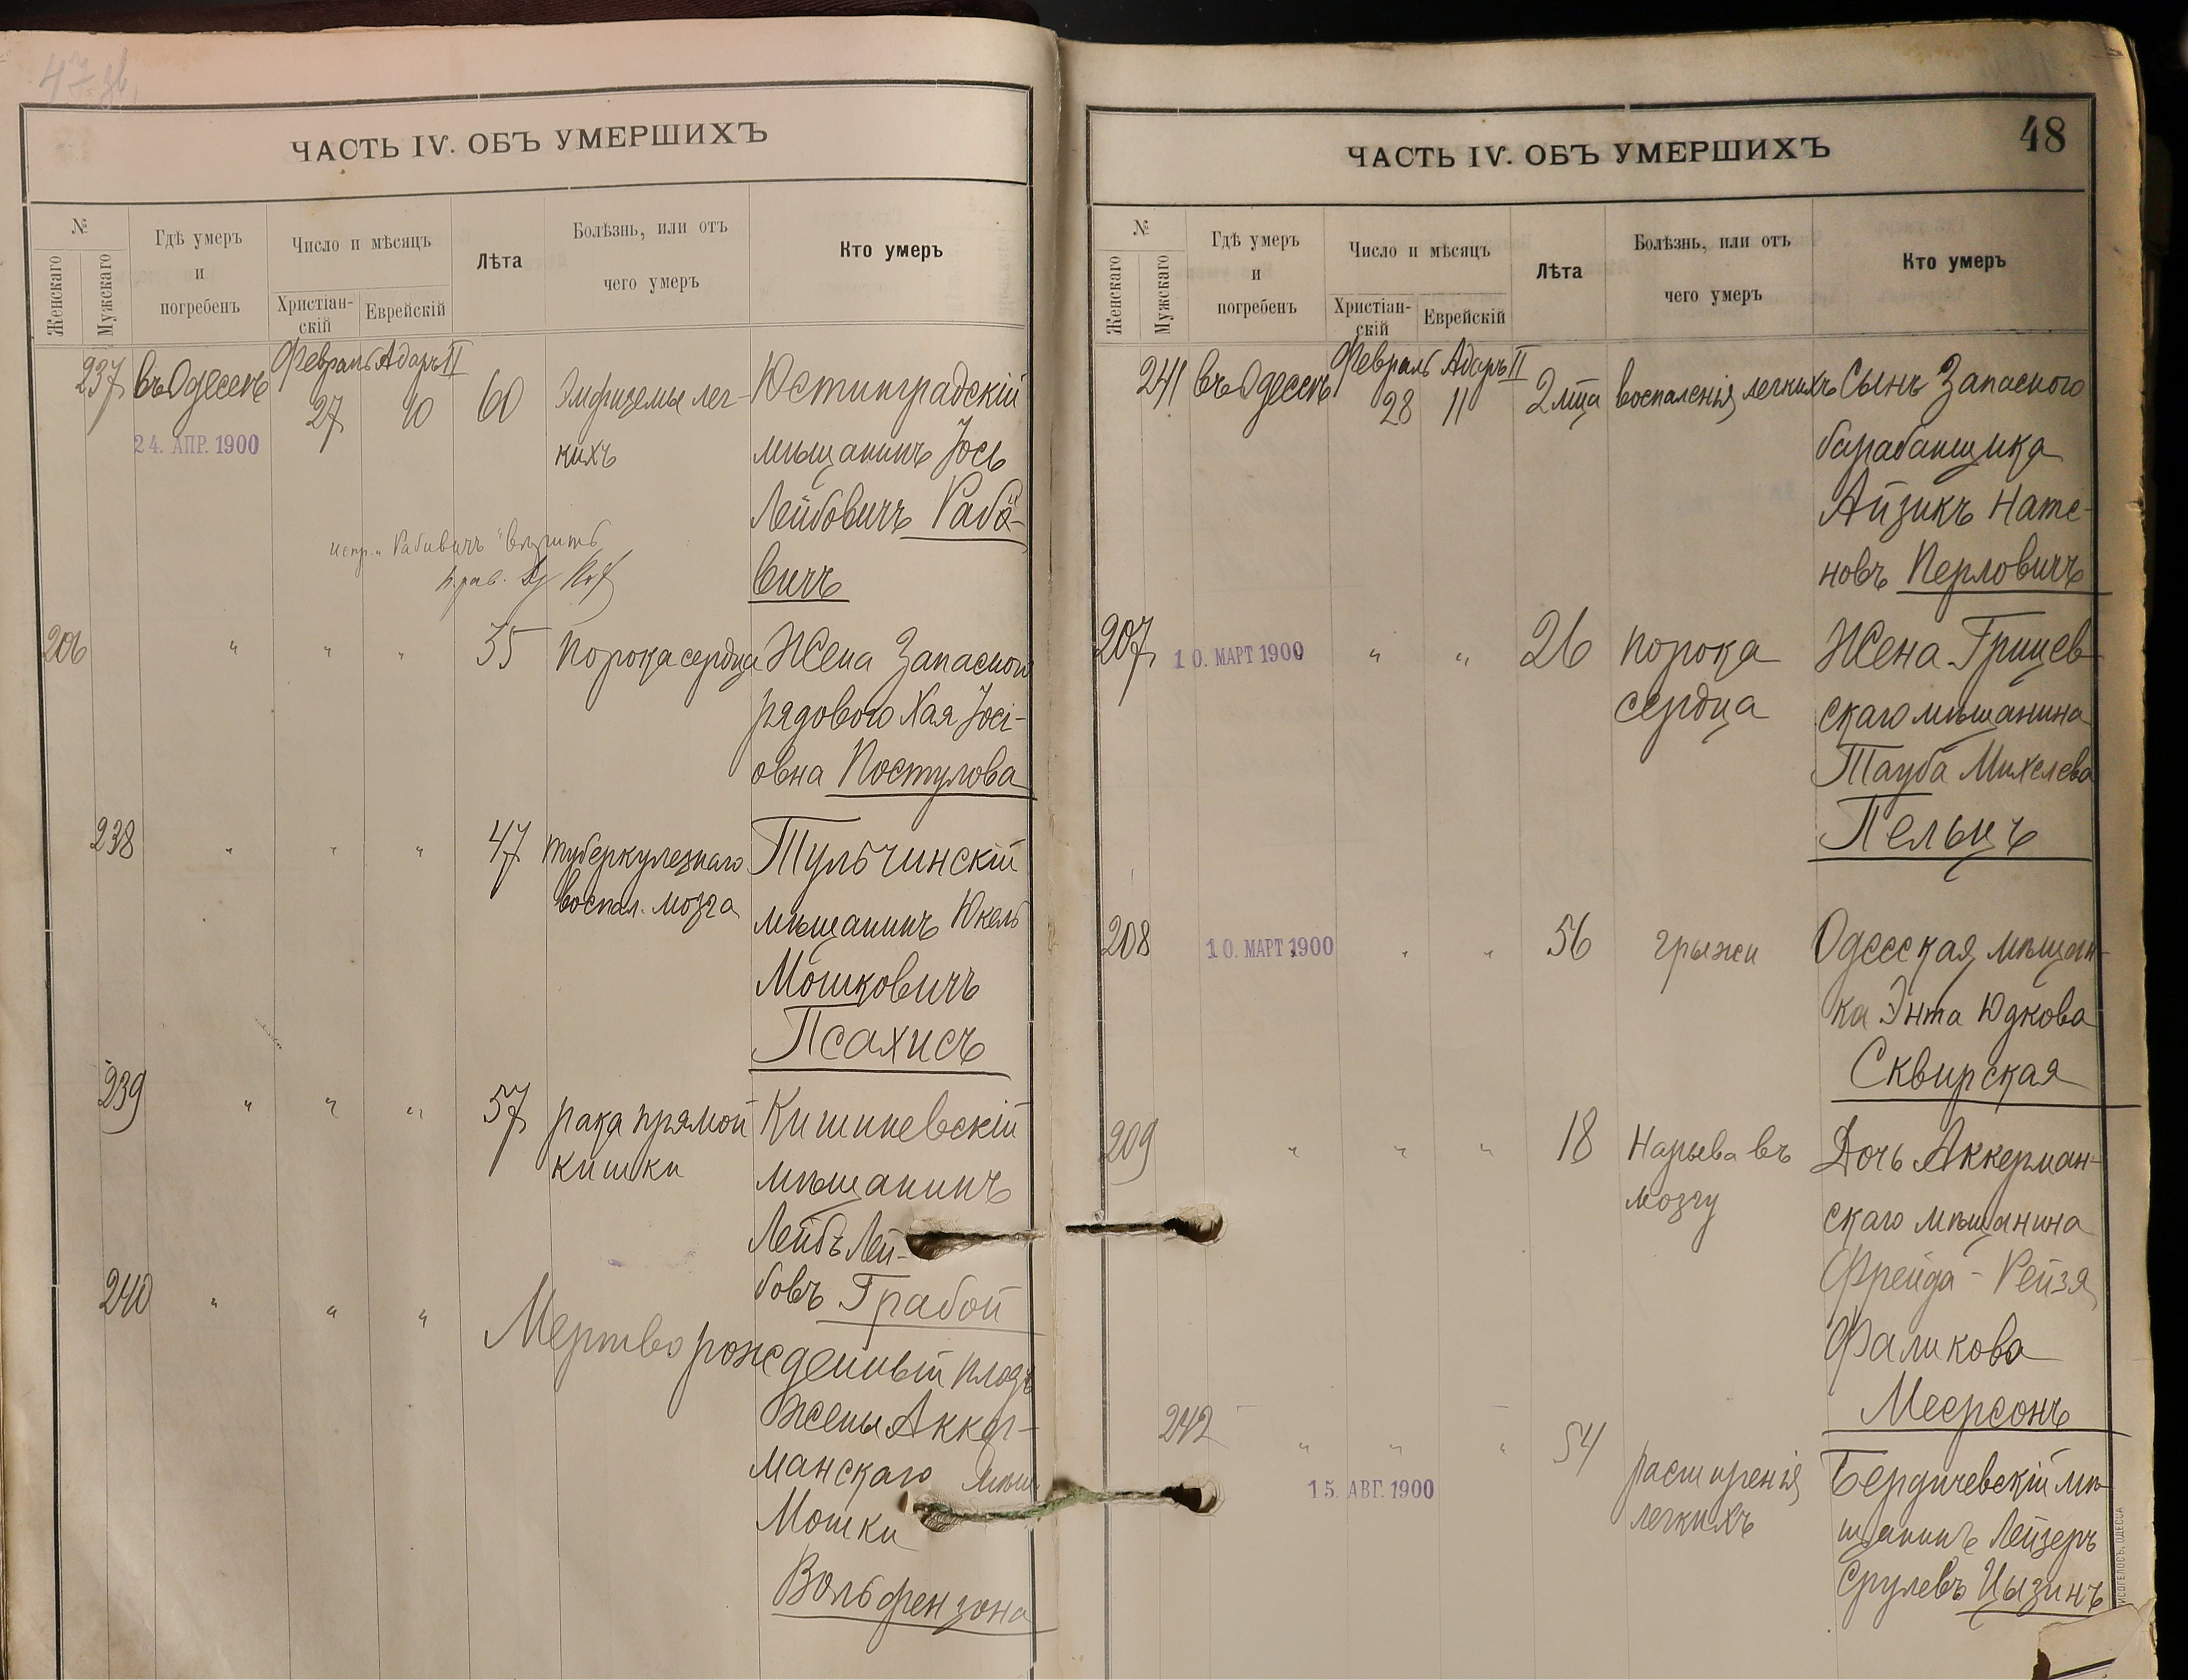 ЧАСТЬ IV. ОБЪ УМЕРШИХЪ
№
Женскаго
Мужскаго
Гдѣ умеръ
и
погребенъ
Число и мѣсяцъ
Христіан-
скій
Еврейскій
Лѣта
Болѣзнь, или отъ
чего умеръ
Кто умеръ
237 въ Одессѣ Февраль Адаръ II
27 10 60 Эмфиземы лег-
кихъ
24. АПР. 1900
Юстинградскій
мѣщанинъ Іось
Лейбовичъ Раби-
вичъ
испр. "Рабивичъ" вѣрить
206 " " " 35 порока сердца Жена Запасного
рядового Хая Іосі-
овна Постулова
238 " " " 47 туберкулезнаго
воспал. мозга
Тульчинскій
мѣщанинъ Юкель
Мошковичъ
Псахисъ
239 " " " 57 рака прямой
кишки
Кишиневскій
мѣщанинъ
Лейбъ Лей-
бовъ Грабой
240 " " "
Мертворожденный плодъ
Жены Аккер-
манскаго мѣщ.
Мошки
Вольфензона
ЧАСТЬ IV. ОБЪ УМЕРШИХЪ
48
№
Женскаго
Мужскаго
Гдѣ умеръ
и
погребенъ
Число и мѣсяцъ
Христіан-
скій
Еврейскій
Лѣта
Болѣзнь, или отъ
чего умеръ
Кто умеръ
241 въ Одессѣ Февраль Адаръ II
28 11 2 мца воспаленія легкихъ Сынъ Запасного
барабанщика
Айзикъ Нате-
новъ Перловичъ
207 10. МАРТ 1900 " " 26 порока
сердца
Жена Грицев
скаго мѣщанина
Тауба Михелева
Пельцъ
208 10. МАРТ 1900 " " 56 грыжи
Одесская мѣщан-
ка Энта Юдкова
Сквирская
209 " " " 18 Нарыва въ
мозгу
Дочь Аккерман-
скаго мѣщанина
Фрейда-Рейзя
Фаликова
Меерсонъ
242 " " " 54 расширенія
легкихъ
15. АВГ. 1900
Бердичевскій мѣ-
щанинъ Лейзеръ
Срулевъ Цызинъ